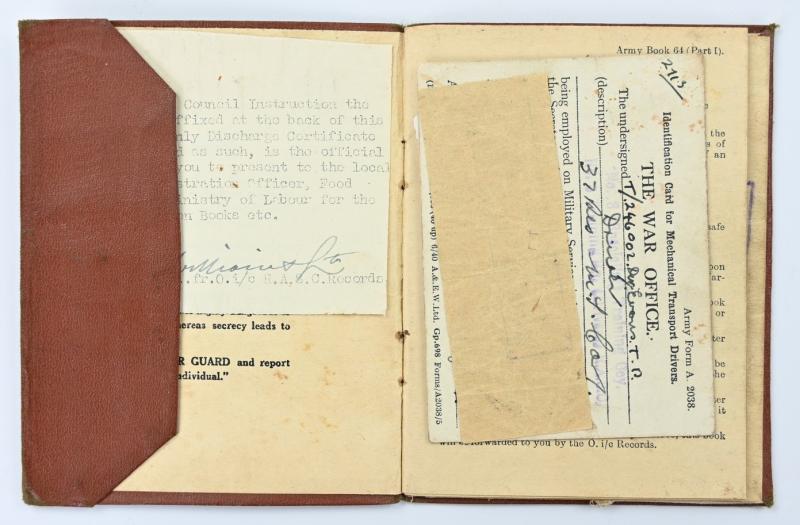 Council Instruction the
ffixed at the back of this
nly Discharge Certificate
d as such, is the official
you to present to the local
stration Officer, Food
inistry of Labour for the
on Books etc.
fr.O.i/c R.A.S.C.Records.
hereas secrecy leads to
R GUARD and report
ndividual."
Army Book 64 (Part I).
Army Form A. 2038.
Identification Card for Mechanical Transport Drivers.
THE WAR OFFICE.
The undersigned T/246002 Evans. T. P.
(description) Driver
being employed on Military Service
the Secret
6/40 A.& E.W.Ltd. Gp.698 Forms/A2038/5
the
s of
an
safe
pon
ar-
ook
or
ter
be
he
er
it
book
will be forwarded to you by the O. i/c Records.